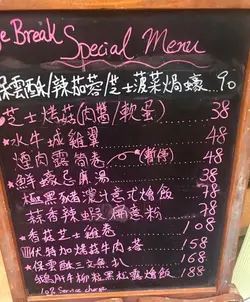 Break
Special Menu
保雲酥/辣茄蓉/芝士菠菜焗蠔 90
芝士烤菇(肉醬/軟蛋) 38
*水牛城雞翼 48
煙肉露筍卷 (暫停) 48
*鮮蠔忌廉湯 38
極黑豬濃汁意式燴飯 78
蒜香辣蝦扁意粉 78
*香菇芝士雞卷 108
伏特加烤菇牛肉 158
*保雲酥三文魚 168
鵝肝牛柳粒黑松露燴飯 188
10% Service charge